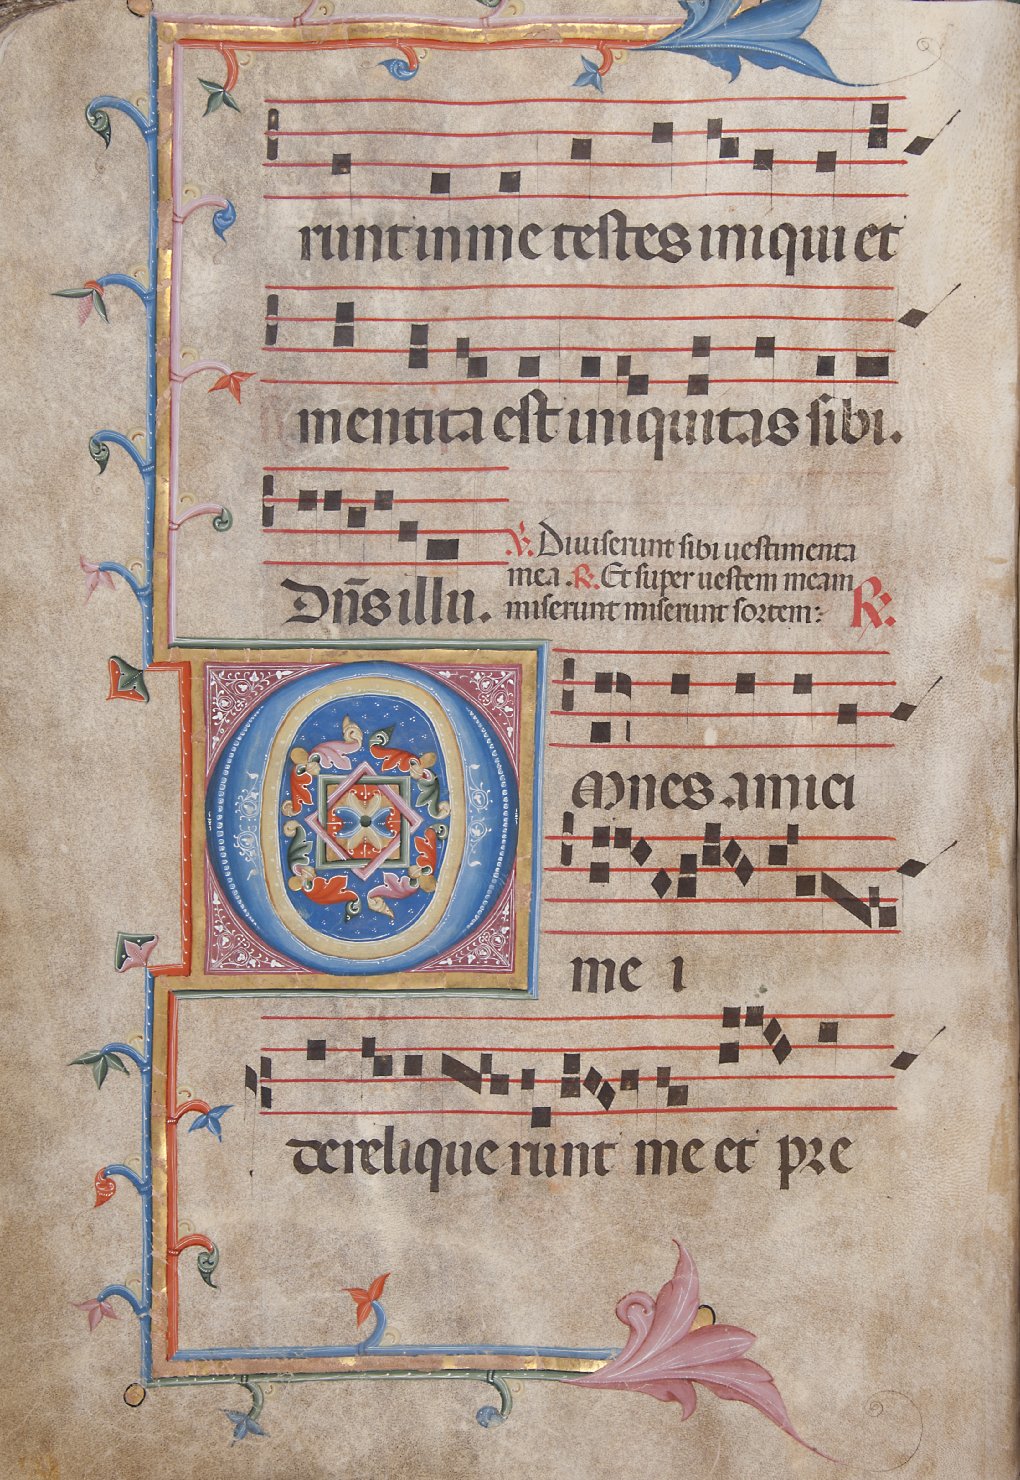 runt in me testes iniqui et
mentita est iniquitas sibi.
Dñs illu.
℣. Diuiserunt sibi uestimenta
mea. ℟. Et super uestem meam
miserunt miserunt sortem: ℟.
Omnes amici
me i
dereliquerunt me et pre